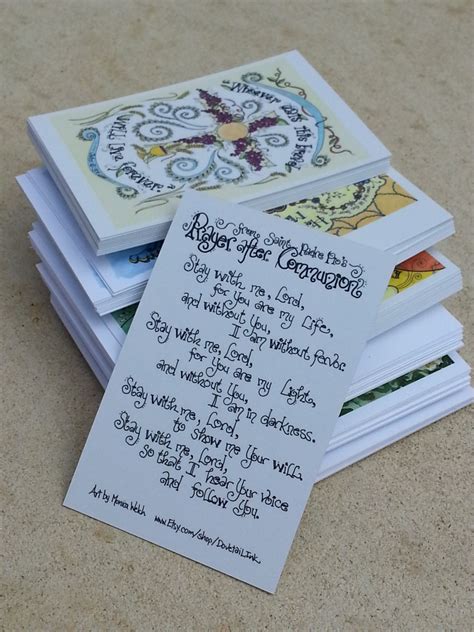 Whoever eats this bread
will live forever.
from Saint Padre Pio's
Prayer after Communion
Stay with me, Lord,
for you are my Life,
and without You,
I am without fervor.
Stay with me, Lord,
for you are my Light,
and without You,
I am in darkness.
Stay with me, Lord,
to show me Your will.
Stay with me, Lord,
so that I hear Your voice
and follow You.
Art by Monica Welch
www.Etsy.com/shop/DovetailInk